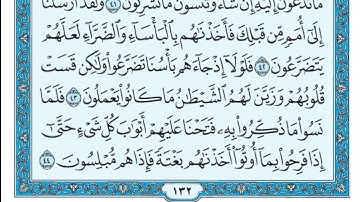 مَا تَدْعُونَ إِلَيْهِ إِن شَآءَ وَتَنسَوْنَ مَا تُشْرِكُونَ ٤١ وَلَقَدْ أَرْسَلْنَآ
إِلَىٰٓ أُمَمٍ مِّن قَبْلِكَ فَأَخَذْنَٰهُم بِٱلْبَأْسَآءِ وَٱلضَّرَّآءِ لَعَلَّهُمْ
يَتَضَرَّعُونَ ٤٢ فَلَوْلَآ إِذْ جَآءَهُم بَأْسُنَا تَضَرَّعُوا۟ وَلَٰكِن قَسَتْ
قُلُوبُهُمْ وَزَيَّنَ لَهُمُ ٱلشَّيْطَٰنُ مَا كَانُوا۟ يَعْمَلُونَ ٤٣ فَلَمَّا
نَسُوا۟ مَا ذُكِّرُوا۟ بِهِۦ فَتَحْنَا عَلَيْهِمْ أَبْوَٰبَ كُلِّ شَىْءٍ حَتَّىٰٓ
إِذَا فَرِحُوا۟ بِمَآ أُوتُوٓا۟ أَخَذْنَٰهُم بَغْتَةً فَإِذَا هُم مُّبْلِسُونَ ٤٤
١٣٢